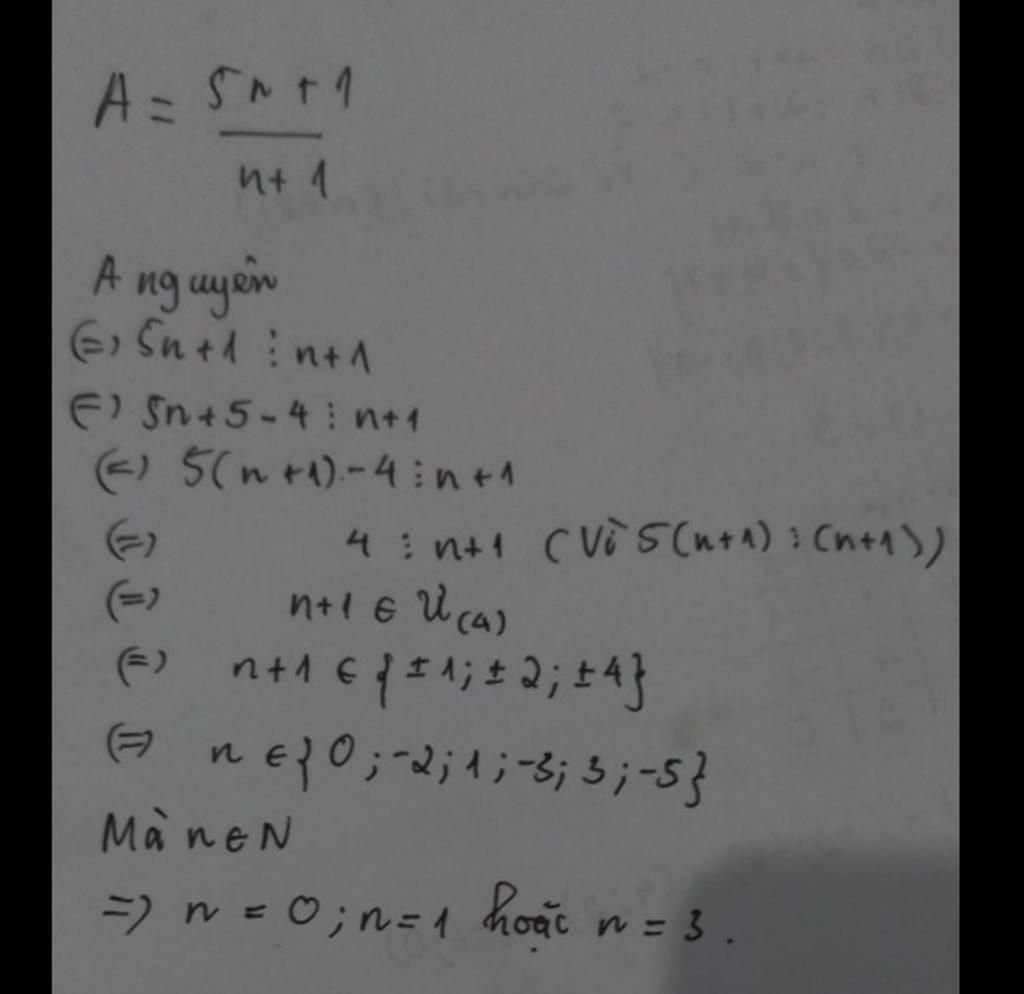 A = 5n + 1
n + 1
A nguyên
(=) 5n + 1 ⋮ n + 1
(=) 5n + 5 - 4 ⋮ n + 1
(=) 5(n + 1) - 4 ⋮ n + 1
(=) 4 ⋮ n + 1 (Vì 5(n+1) ⋮ (n+1))
(=) n + 1 ∈ Ư(4)
(=) n + 1 ∈ {±1; ±2; ±4}
(=) n ∈ {0; -2; 1; -3; 3; -5}
Mà n ∈ N
=) n = 0; n = 1 hoặc n = 3.